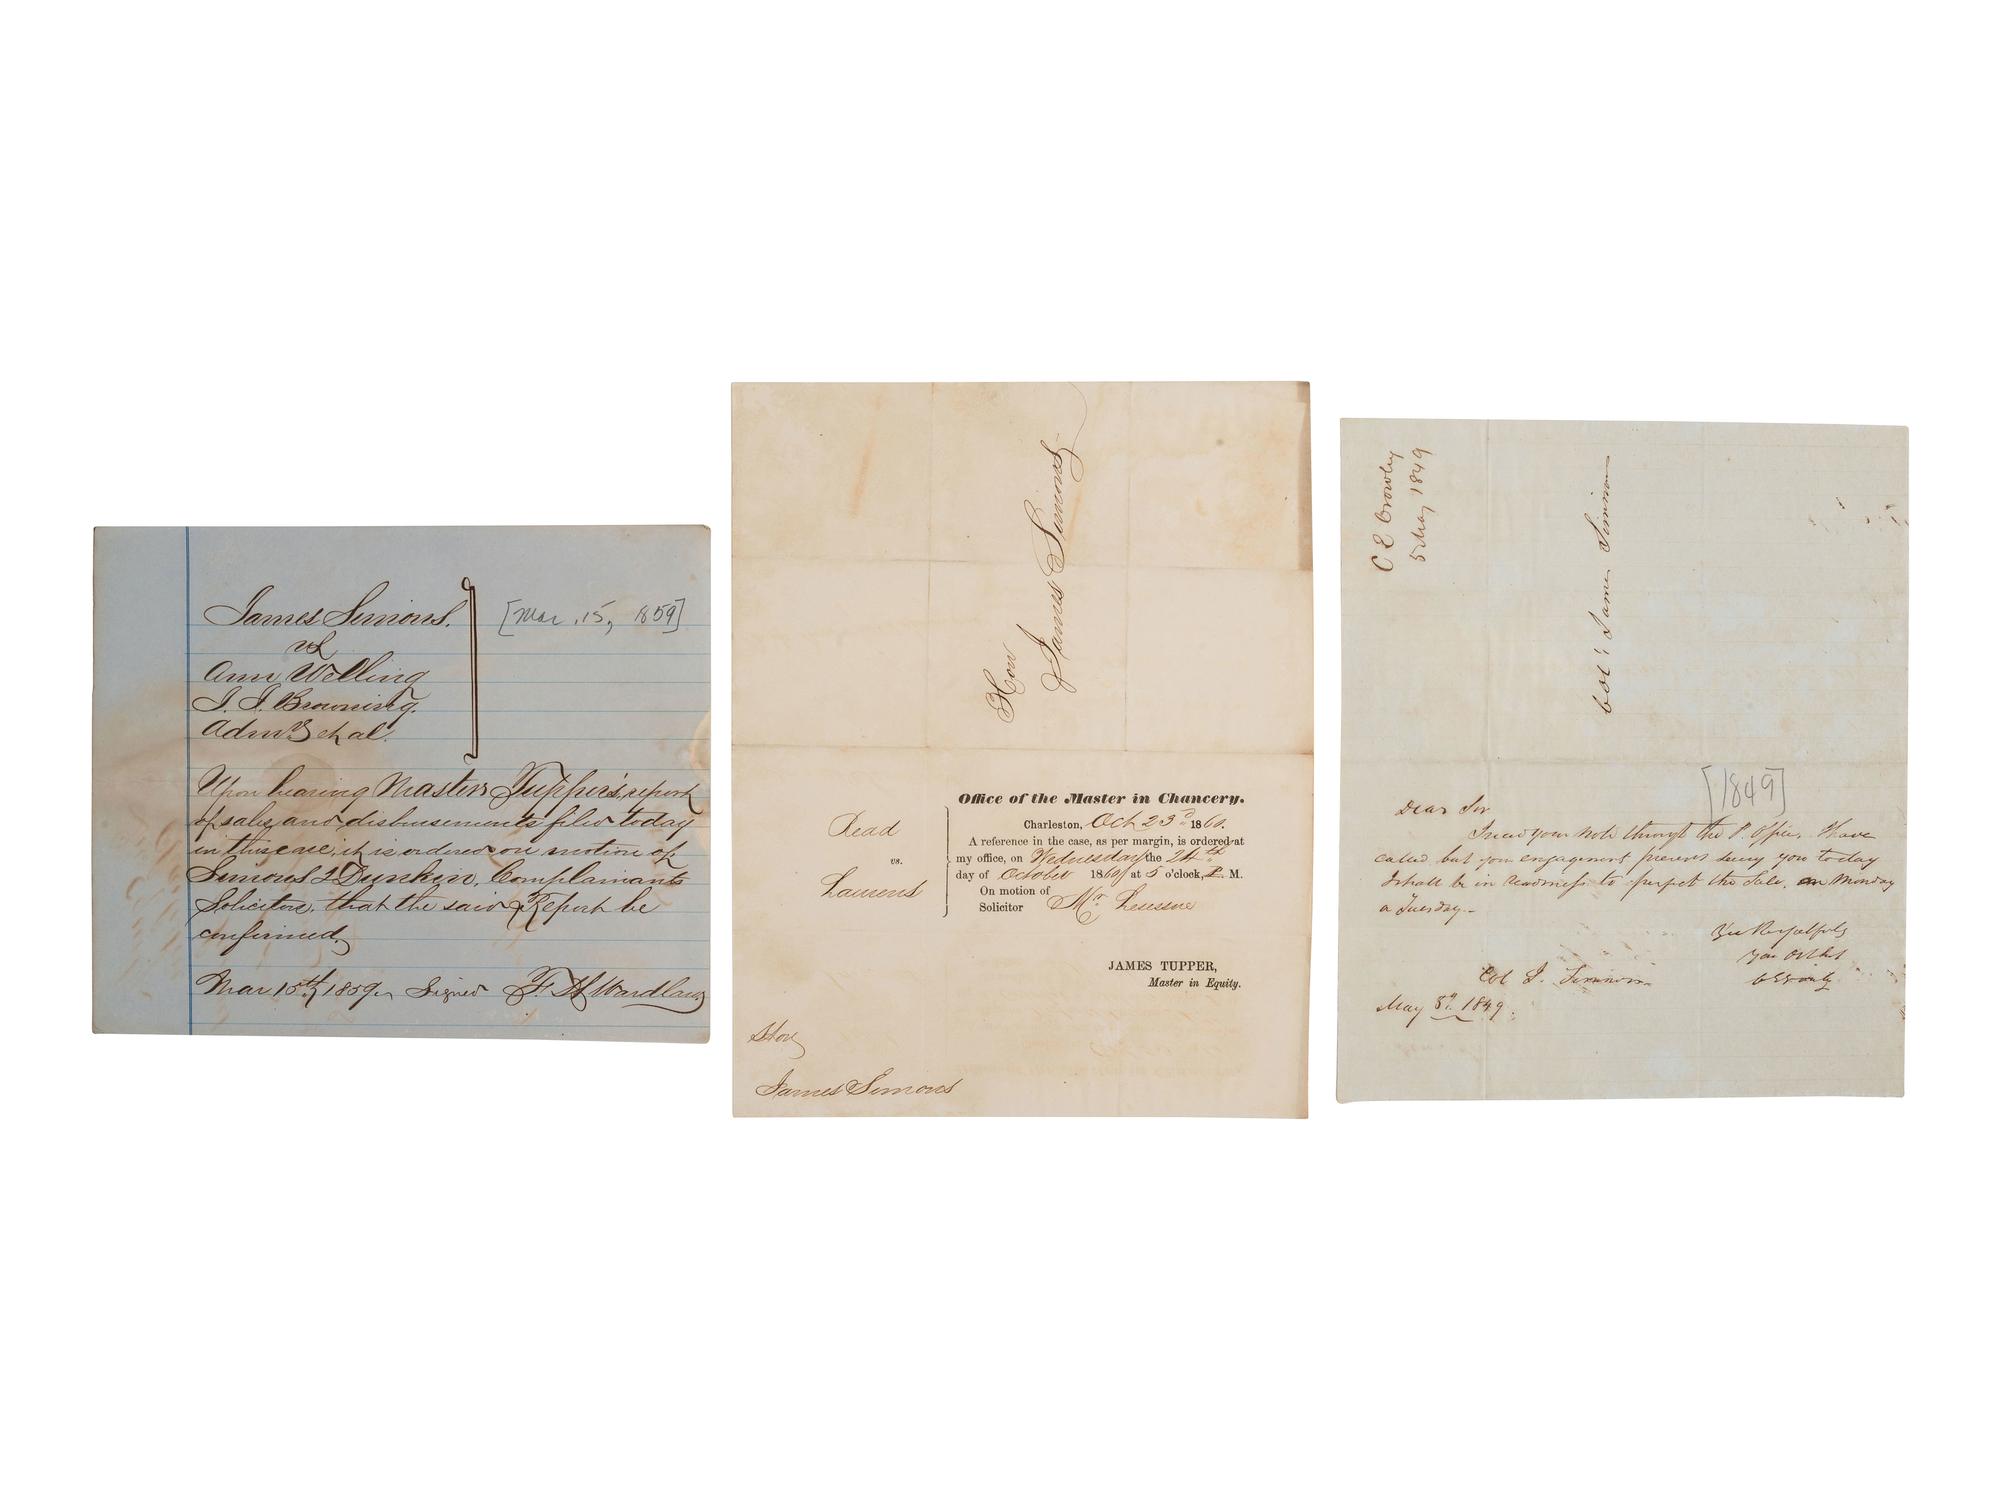 James Simons.
vs
Ann Welling
J. J. Browning.
Admr. et al.
[Mar. 15, 1859]
Upon hearing Master Tupper's report
of sales and disbursements filed today
in this case, it is ordered on motion of
Simons & Dunkin, Complainants
Solicitors, that the said Report be
confirmed.
Mar 15th, 1859. Signed F. H Wardlaw
Hon
James Simons
Office of the Master in Chancery.
Charleston, Oct 23d 1860.
Read
vs.
Laurens
A reference in the case, as per margin, is ordered at
my office, on Wednesday the 24th
day of October 1860 at 5 o'clock, P. M.
On motion of
Solicitor Mr. Lesesne
JAMES TUPPER,
Master in Equity.
James Simons
C E Crowley
5 May 1849
Col: James Simons
[1849]
Dear Sir
I recd your note through the P. Office, I have
called but your engagement prevent seeing you today
I shall be in readiness to perfect the Sale, on Monday
or Tuesday.
Yrs Respectfully
Col J. Simmons
May 1849.